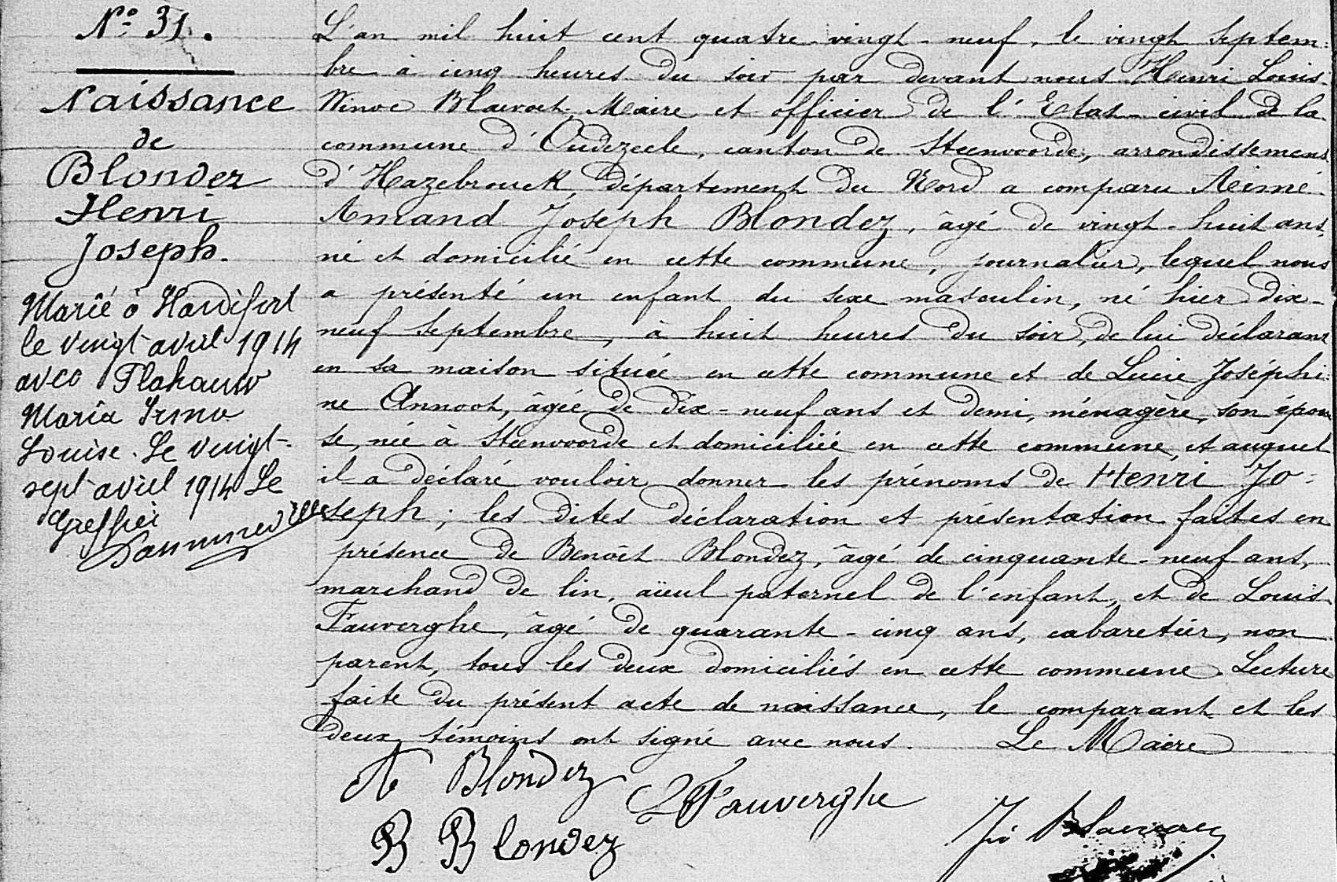 N° 31.
Naissance
de
Blondez
Henri
Joseph.
Marié à Hardifort
le vingt avril 1914
avec Flahauw
Maria Irma
Louise. Le vingt-
sept avril 1914 Le
Greffier
L'an mil huit cent quatre-vingt-neuf, le vingt septem-
bre à cinq heures du soir par devant nous Henri Louis
Winoc Blavoet, Maire et officier de l'Etat-civil de la
commune d'Oudezeele, canton de Steenvoorde, arrondissement
d'Hazebrouck, département du Nord a comparu Aimé
Amand Joseph Blondez, âgé de vingt-huit ans,
né et domicilié en cette commune, journalier, lequel nous
a présenté un enfant du sexe masculin, né hier dix-
neuf septembre, à huit heures du soir, de lui déclarant
en sa maison située en cette commune et de Lucie Joséphi-
ne Annoot, âgée de dix-neuf ans et demi, ménagère, son épou-
se, née à Steenvoorde et domiciliée en cette commune, et auquel
il a déclaré vouloir donner les prénoms de Henri Jo-
seph; les dites déclaration et présentation faites en
présence de Benoît Blondez, âgé de cinquante-neuf ans,
marchand de lin, aïeul paternel de l'enfant, et de Louis
Fauverghe, âgé de quarante-cinq ans, cabaretier, non
parent, tous les deux domiciliés en cette commune. Lecture
faite du présent acte de naissance, le comparant et les
deux témoins ont signé avec nous. Le Maire
A Blondez
L Fauverghe
B Blondez